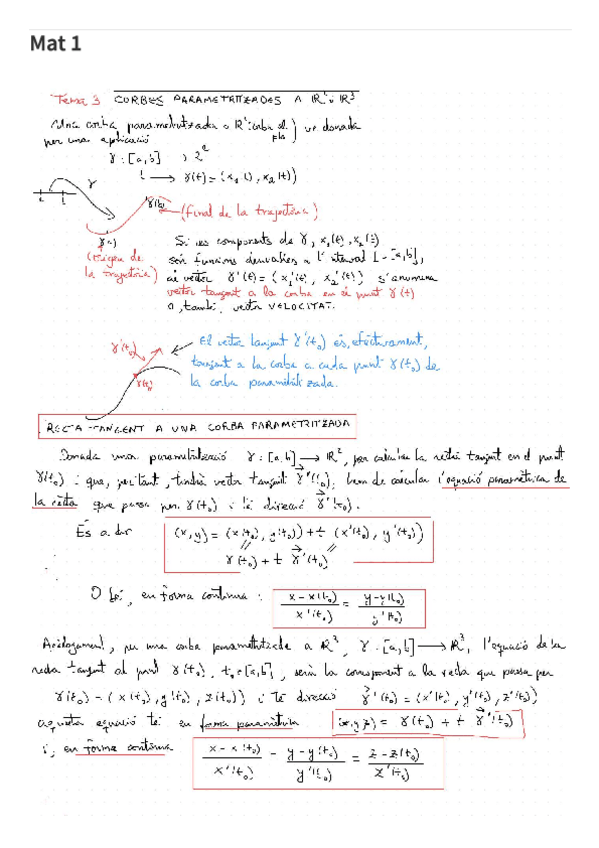 Mat 1
Tema 3 CORBES PARAMETRITZADES A ℝ² i ℝ³
Una corba parametritzada a ℝ² (corba al pla) ve donada
per una aplicació
γ : [a,b] → ℝ²
t → γ(t) = (x₁(t), x₂(t))
γ
γ(b) (final de la trajectòria)
γ(a)
(origen de
la trajectòria)
Si les components de γ, x₁(t), x₂(t)
són funcions derivables a l'interval I = [a,b],
el vector γ'(t) = (x₁'(t), x₂'(t)) s'anomena
vector tangent a la corba en el punt γ(t)
o, també, vector VELOCITAT.
γ'(t₀)
γ(t₀)
El vector tangent γ'(t₀) és, efectivament,
tangent a la corba a cada punt γ(t₀) de
la corba parametritzada.
RECTA TANGENT A UNA CORBA PARAMETRITZADA
Donada una parametrització γ : [a,b] → ℝ², per calcular la recta tangent en el punt
γ(t₀) i que, per tant, tindrà vector tangent γ'(t₀), hem de calcular l'equació paramètrica de
la recta que passa per γ(t₀) i té direcció γ'(t₀).
És a dir (x,y) = (x(t₀), y(t₀)) + t (x'(t₀), y'(t₀))
γ(t₀) + t γ'(t₀)
O bé, en forma contínua : (x - x(t₀))/x'(t₀) = (y - y(t₀))/y'(t₀)
Anàlogament, per una corba parametritzada a ℝ³, γ : [a,b] → ℝ³, l'equació de la
recta tangent al punt γ(t₀), t₀ ∈ [a,b], serà la corresponent a la recta que passa per
γ(t₀) = (x(t₀), y(t₀), z(t₀)) i té direcció γ'(t₀) = (x'(t₀), y'(t₀), z'(t₀))
aquesta equació té en forma paramètrica (x,y,z) = γ(t₀) + t γ'(t₀)
i, en forma contínua (x - x(t₀))/x'(t₀) = (y - y(t₀))/y'(t₀) = (z - z(t₀))/z'(t₀)